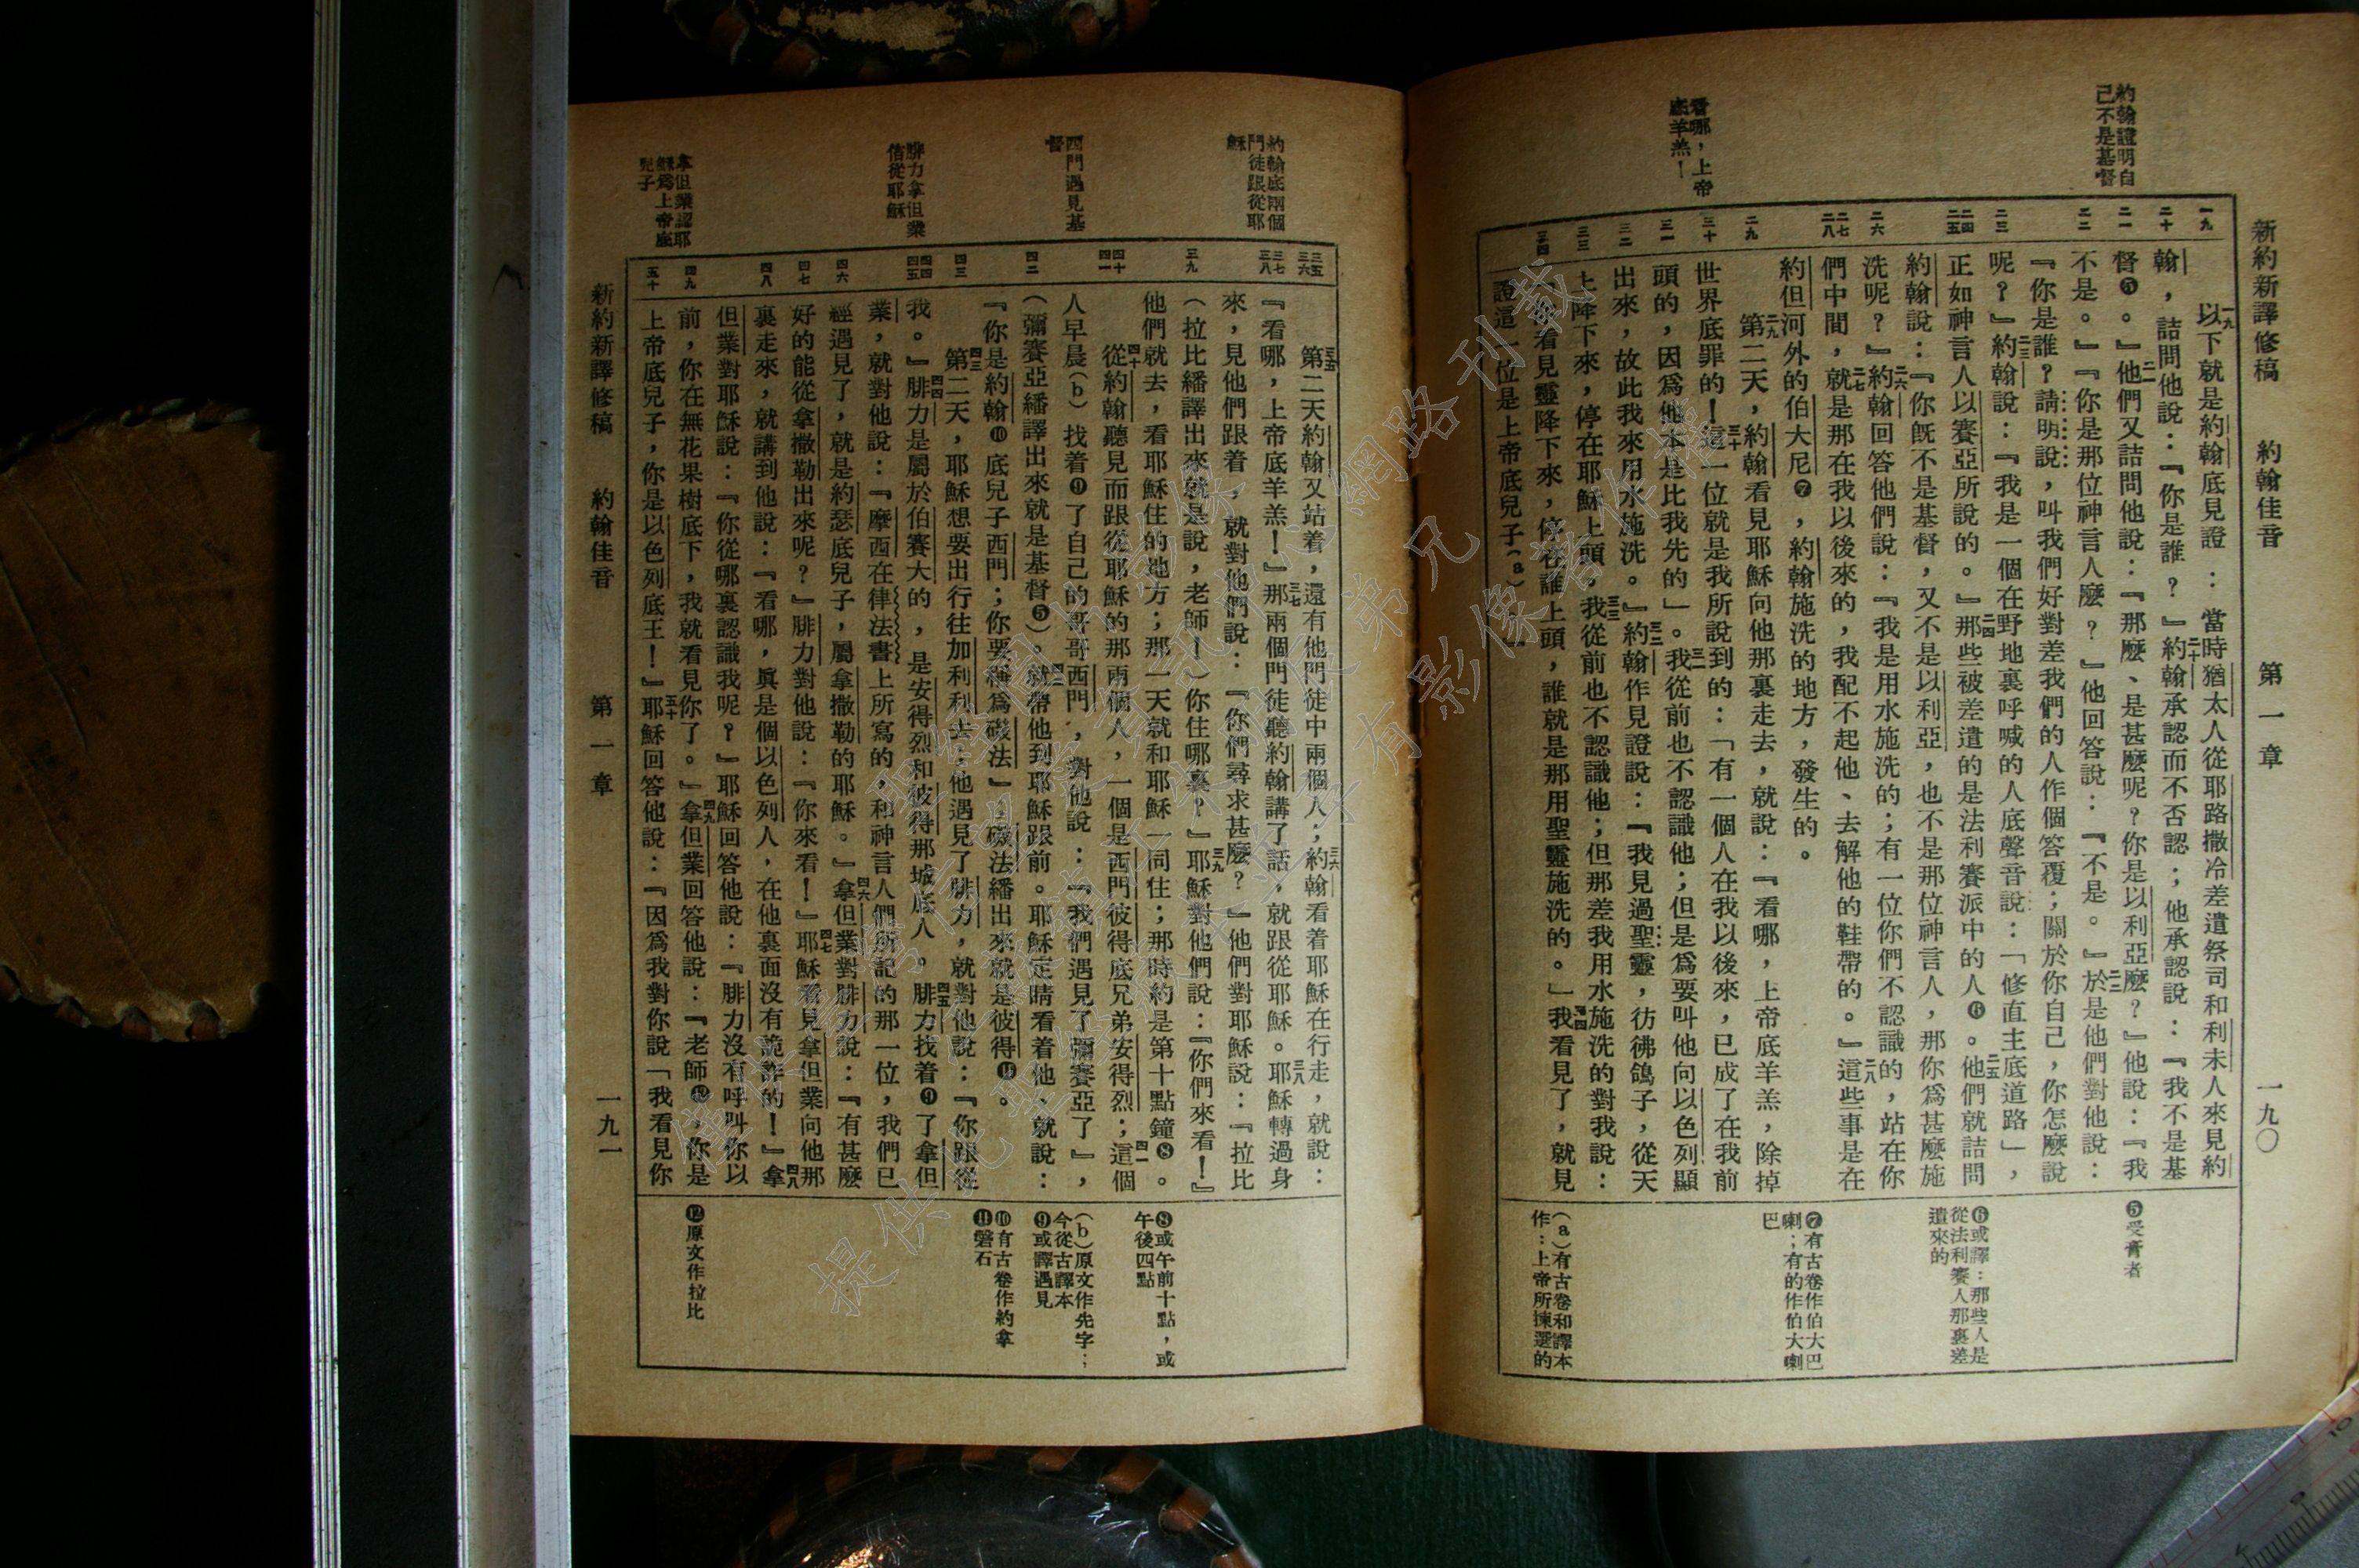 新約新譯修稿　約翰佳音　第一章　一九〇
約翰證明自
己不是基督
看哪，上帝
底羊羔！
一九
二十
二一
二二
二三
二四
二五
二六
二七
二八
二九
三十
三一
三二
三三
三四
一九以下就是約翰底見證：當時猶太人從耶路撒冷差遣祭司和利未人來見約
翰，詰問他說：『你是誰？』二十約翰承認而不否認；他承認說：『我不是基
督❺。』二一他們又詰問他說：『那麼、是甚麼呢？你是以利亞麼？』他說：『我
不是。』『你是那位神言人麼？』他回答說：『不是。』二二於是他們對他說：
『你是誰？請明說，叫我們好對差我們的人作個答覆；關於你自己，你怎麼說
呢？』二三約翰說：『我是一個在野地裏呼喊的人底聲音說：「修直主底道路」，
正如神言人以賽亞所說的。』二四那些被差遣的是法利賽派中的人❻。二五他們就詰問
約翰說：『你既不是基督，又不是以利亞，也不是那位神言人，那你為甚麼施
洗呢？』二六約翰回答他們說：『我是用水施洗的；有一位你們不認識的，站在你
們中間，二七就是那在我以後來的，我配不起他、去解他的鞋帶的。』二八這些事是在
約但河外的伯大尼❼，約翰施洗的地方，發生的。
二九第二天，約翰看見耶穌向他那裏走去，就說：『看哪，上帝底羊羔，除掉
世界底罪的！三十這一位就是我所說到的：「有一個人在我以後來，已成了在我前
頭的，因為他本是比我先的」。三一我從前也不認識他；但是為要叫他向以色列顯
出來，故此我來用水施洗。』三二約翰作見證說：『我見過聖靈，彷彿鴿子，從天
上降下來，停在耶穌上頭，三三我從前也不認識他；但那差我用水施洗的對我說：
「你看見靈降下來，停在誰上頭，誰就是那用聖靈施洗的。」三四我看見了，就見
證這一位是上帝底兒子（a）。』
❺受膏者
❻或譯：那些人是
從法利賽人那裏差
遣來的
❼有古卷作伯大巴
喇；有的作伯大喇
巴
（a）有古卷和譯本
作：上帝所揀選的
約翰底兩個
門徒跟從耶
穌
西門遇見基
督
腓力拿但業
偕從耶穌
拿但業認耶
穌為上帝底
兒子
三五
三六
三七
三八
三九
四十
四一
四二
四三
四四
四五
四六
四七
四八
四九
五十
三五第二天約翰又站着，還有他門徒中兩個人；三六約翰看着耶穌在行走，就說：
『看哪，上帝底羊羔！』三七那兩個門徒聽約翰講了話，就跟從耶穌。三八耶穌轉過身
來，見他們跟着，就對他們說：『你們尋求甚麼？』他們對耶穌說：『拉比
（拉比繙譯出來就是說，老師！）你住哪裏？』三九耶穌對他們說：『你們來看！』
他們就去，看耶穌住的地方；那一天就和耶穌一同住；那時約是第十點鐘❽。
四十從約翰聽見而跟從耶穌的那兩個人，一個是西門彼得底兄弟安得烈；四一這個
人早晨（b）找着❾了自己的哥哥西門，對他說：『我們遇見了彌賽亞了』，
（彌賽亞繙譯出來就是基督❺）。四二就帶他到耶穌跟前。耶穌定睛看着他、就說：
『你是約翰❿底兒子西門；你要稱為磯法』；磯法繙出來就是彼得⓫。
四三第二天，耶穌想要出行往加利利去；他遇見了腓力，就對他說：『你跟從
我。』四四腓力是屬於伯賽大的，是安得烈和彼得那城底人。四五腓力找着❾了拿但
業，就對他說：『摩西在律法書上所寫的，和神言人們所記的那一位，我們已
經遇見了，就是約瑟底兒子，屬拿撒勒的耶穌。』四六拿但業對腓力說：『有甚麼
好的能從拿撒勒出來呢？』腓力對他說：『你來看！』四七耶穌看見拿但業向他那
裏走來，就講到他說：『看哪，真是個以色列人，在他裏面沒有詭詐的！』四八拿
但業對耶穌說：『你從哪裏認識我呢？』耶穌回答他說：『腓力沒有呼叫你以
前，你在無花果樹底下，我就看見你了。』四九拿但業回答他說：『老師⓬，你是
上帝底兒子，你是以色列底王！』五十耶穌回答他說：『因為我對你說「我看見你
❽或午前十點，或
午後四點
（b）原文作先字；
今從古譯本
❾或譯遇見
❿有古卷作約拿
⓫磐石
⓬原文作拉比
新約新譯修稿　約翰佳音　第一章　一九一